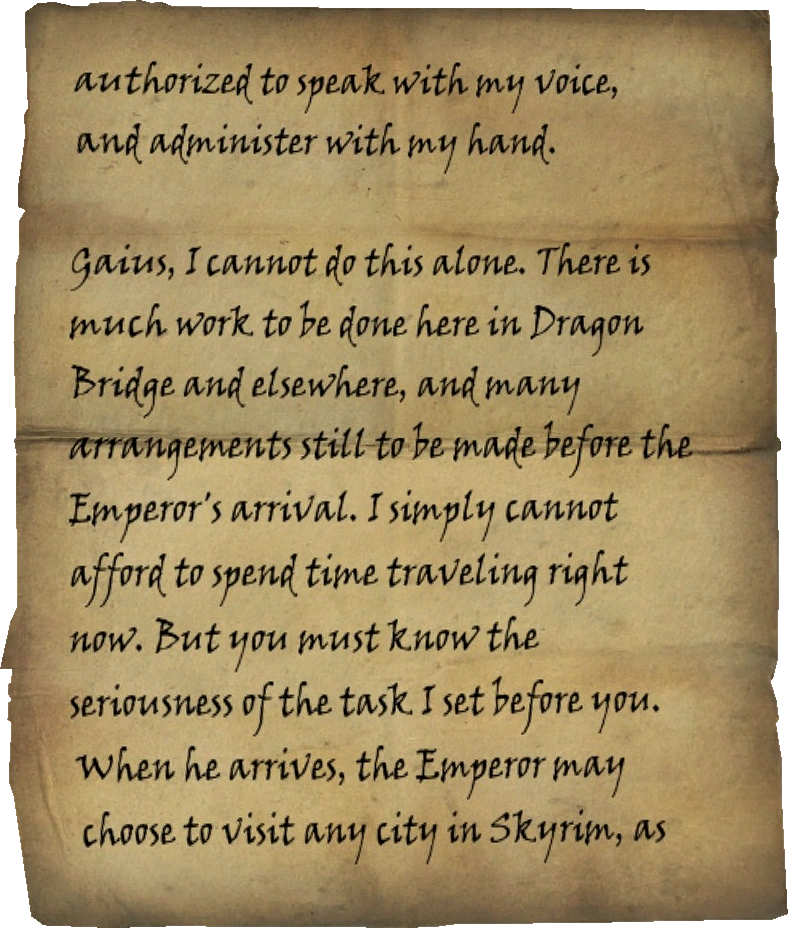 authorized to speak with my voice,
and administer with my hand.
Gaius, I cannot do this alone. There is
much work to be done here in Dragon
Bridge and elsewhere, and many
arrangements still to be made before the
Emperor's arrival. I simply cannot
afford to spend time traveling right
now. But you must know the
seriousness of the task I set before you.
When he arrives, the Emperor may
choose to visit any city in Skyrim, as